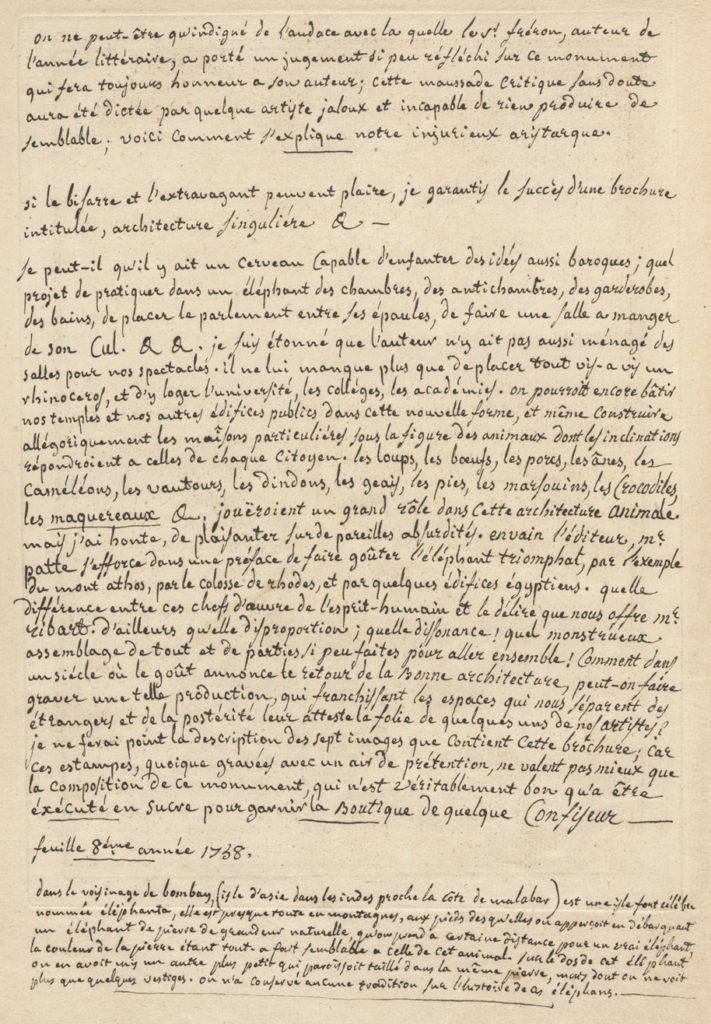 on ne peut-être qu'indigné de l'audace avec la quelle le Sr. fréron, auteur de
l'année littéraire, a porté un jugement si peu réfléchi sur ce monument
qui fera toujours honneur a son auteur; cette maussade critique sans doute
aura été dictée par quelque artiste jaloux et incapable de rien produire de
semblable; voici comment s'explique notre injurieux aristarque.
si le bisarre et l'extravagant peuvent plaire, je garantis le succès d'une brochure
intitulée, architecture singuliére & —
se peut-il qu'il y ait un cerveau capable d'enfanter des idées aussi baroques; quel
projet de pratiquer dans un éléphant des chambres, des antichambres, des garderobes,
des bains, de placer le parlement entre ses épaules, de faire une salle a manger
de son Cul. & &. je suis étonné que l'auteur n'y ait pas aussi ménagé des
salles pour nos spectacles. il ne lui manque plus que de placer tout vis-a vis un
rhinoceros, et d'y loger l'université, les colléges, les académies. on pourroit encore bâtir
nos temples et nos autres édifices publics dans cette nouvelle forme, et même construire
allégoriquement les maisons particuliéres sous la figure des animaux dont les inclinations
répondroient a celles de chaque Citoyen. les loups, les bœufs, les porcs, les ânes, les
Caméléons, les vautours, les dindons, les geais, les pies, les marsouins, les Crocodiles,
les maquereaux &. joüeroient un grand rôle dans cette architecture animale.
mais j'ai honte, de plaisanter sur de pareilles absurdités. envain l'éditeur, mr.
patte s'efforce dans une préface de faire goûter l'éléphant triomphal, par l'exemple
du mont athos, par le colosse de rhodes, et par quelques édifices égyptiens. quelle
différence entre ces chefs d'œuvre de l'esprit-humain et le délire que nous offre mr.
ribart. d'ailleurs qu'elle disproportion; quelle dissonance! quel monstrueux
assemblage de tout et de parties si peu faites pour aller ensemble! Comment dans
un siécle où le goût annonce le retour de la Bonne architecture, peut-on faire
graver une telle production, qui franchissant les espaces qui nous séparent des
étrangers et de la postérité leur atteste la folie de quelques uns de nos artistes?
je ne ferai point la description des sept images que contient cette brochure; car
ces estampes, quoique gravées avec un air de prétention, ne valent pas mieux que
la composition de ce monument, qui n'est véritablement bon qu'a être
éxécuté en sucre pour garnir la Boutique de quelque Confiseur —
feuille 8éme année 1758.
dans le voisinage de bombay, (isle d'asie dans les indes proche la côte de malabar) est une isle fort célébre
nommée éléphanta, elle est presque toute en montagnes, aux pieds desqu'elles on apperçoit en débarquant
un éléphant de pierre de grandeur naturelle, qu'on prend a certaine distance pour un vrai éléphant,
la couleur de la pierre étant tout-a fait semblable a celle de cet animal. sur le dos de cet éléphant
on en avoit mis un autre plus petit qui paroissoit taillé dans la même pierre, mais dont on ne voit
plus que quelques vestiges. on n'a conservé aucune tradition sur l'histoire de ces éléphans. —